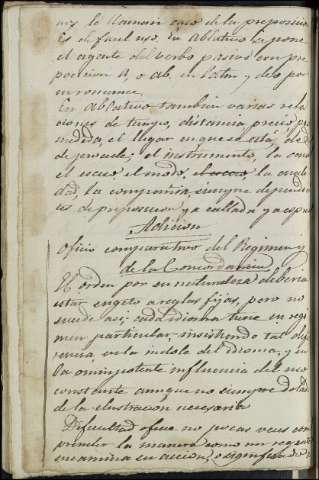 nos le llaman caso de la preposicion
Es de facil uso. En Ablativo se pone
el agente del verbo pasivo con pre
posicion A, o ab, en latin, y de o por
en romance.
En Ablativo tambien varias rela
ciones de tiempo, distancia precio,
medida, el lugar en que se está, de
de procede; el instrumento, la
el modo, la
dad, la compañia, siempre dependien
tes de preposicion ya callada ya
Adicion
Oficio comparativo del Regimen y
de la Concordancia
El orden por su naturaleza deberia
estar sugeto a reglas fijas, pero no
sucede asi; cada idioma tiene su regi
men particular, insistiendo tal dife
rencia en la indole del Idioma, y en
la omnipotente influencia del uso
constante aunque no siempre dotado
de la ilustracion necesaria
Dificultad ofrece no pocas veces com
prender la manera como un
encamina su accion, o significado